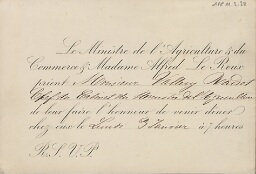 Le Ministre de l'Agriculture & du
Commerce & Madame Alfred Le Roux
prient Monsieur Vallery Radot
Chef du Cabinet du Ministre de l'Agriculture
de leur faire l'honneur de venir dîner
chez eux le Lundi 3 Janvier à 7 heures
R.S.V.P.